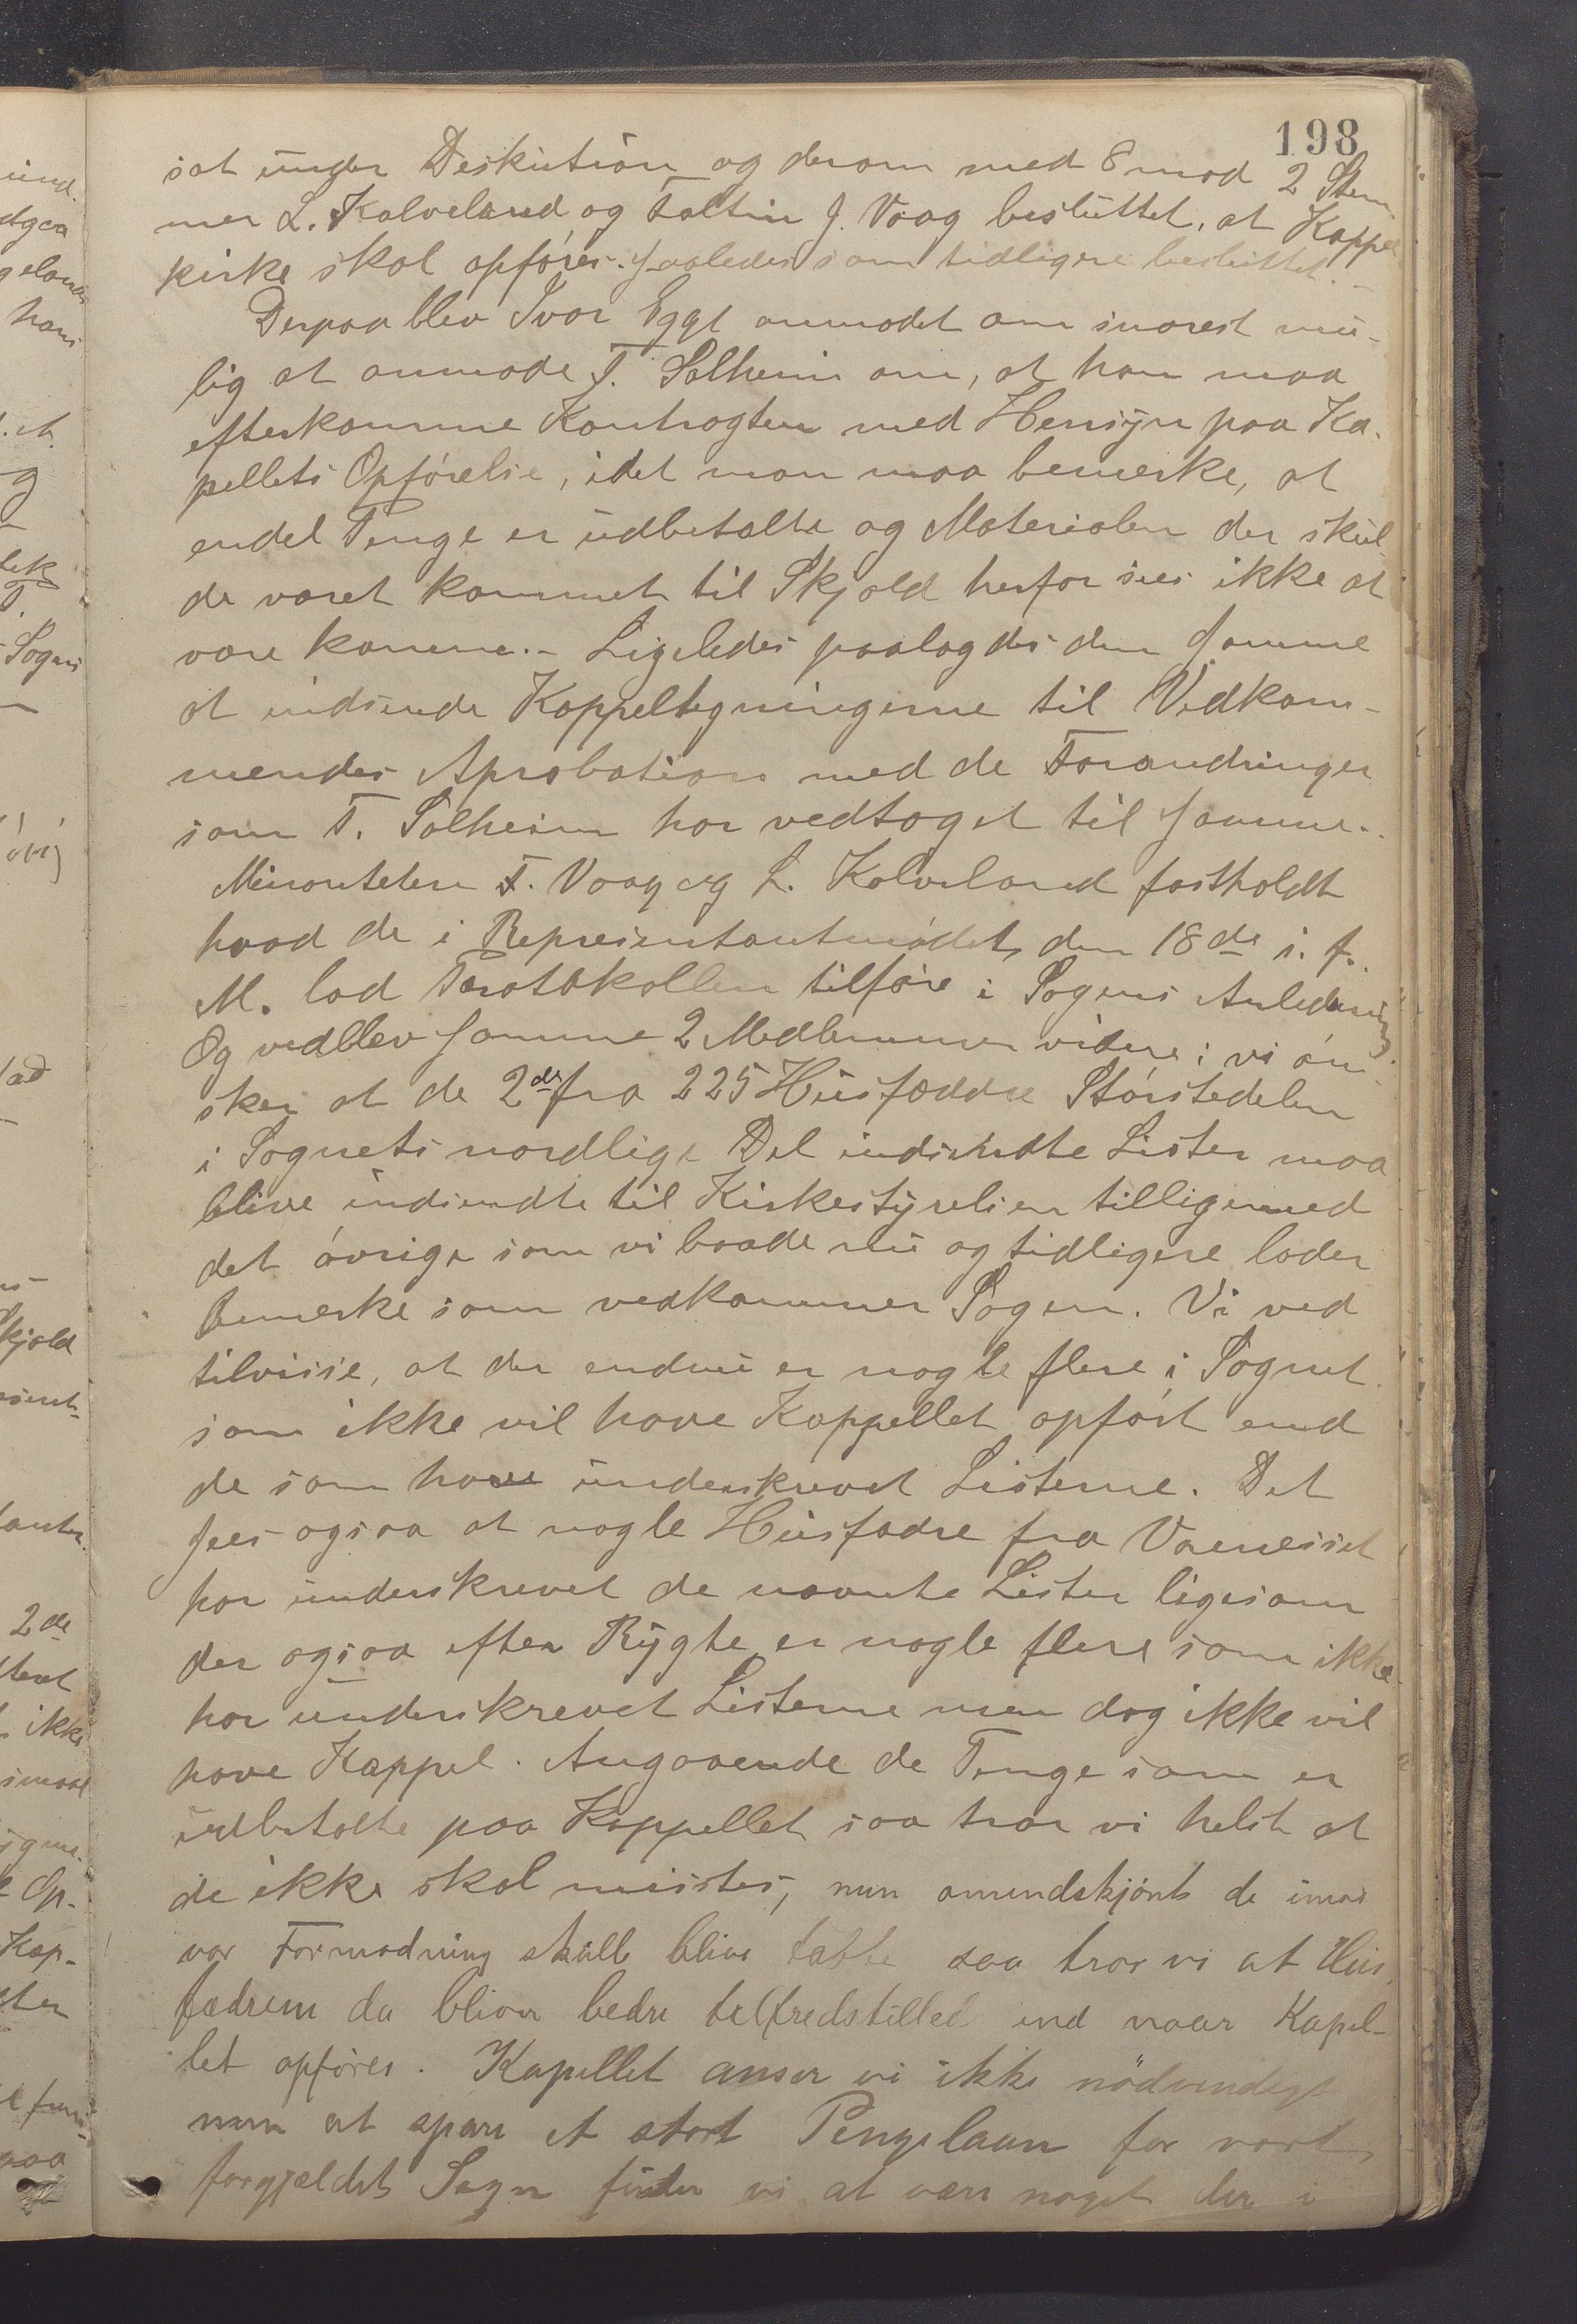 198
sat under Deskution og derom med 8 mod 2 Stem
mer L. Kalveland og Faltin J. Vaag besluttet, at Kappel
kirke skal opføres saaledes som tidligere besluttet.
Derpaa blev Ivar Egge anmodet om snarest mu-
lig at anmode T. Solheim om, at han maa
efterkomme Kontragten med Hensyn paa Ka-
pellets Opførelse, idet man maa bemerke, at
endel Penge er udbetalte og Materialer der skul
de været kommet til Skjold herfor sees ikke at
være komne.- Ligeledes paalagdes den samme
at indsende Kappeltegningerne til Vedkom-
mendes Aprobation med de Forandringer
som T. Solheim har vedtaget til samme.
Minoriteten F. Vaag og L. Kalveland fastholdt
hvad de i Representantmødet den 18de i. f.
M. lod Protokollen tilføre i Sagens Anledning.
Og vedblev samme 2 Medlemmer videre: vi øn-
sker at de 2de fra 225 Husfæddre Størstedelen
i Sognets nordlige Del indsendte Lister maa
blive indsendte til Kirkestyrelsen tilligemed
det øvrige som vi baade nu og tidligere lader
bemerke som vedkommer Sagen. Vi ved
tilvisse, at der endnu er nogle flere i Sognet
som ikke vil have Kappellet opført end
de som have underskrevet Listerne. Det
sees ogsaa at nogle Husfædre fra
har underskrevet de nævnte Lister ligesom
der ogsaa efter Rygte er nogle flere som ikke
har underskrevet Listerne men dog ikke vil
have Kappel. Angaaende de Penge som er
udbetalte paa Kappellet saa tror vi helst at
de ikke skal mistes, men omendskjønt de imod
vor Formodning skulle blive tabte saa tror vi at Hus
fædrene da bliver bedre tilfredstilled end naar Kapel-
let opføres. Kapellet anser vi ikke nödvendigt
men at spare et stort Pengelaan for vort
forgjældet Sogn finder vi at være noget der i